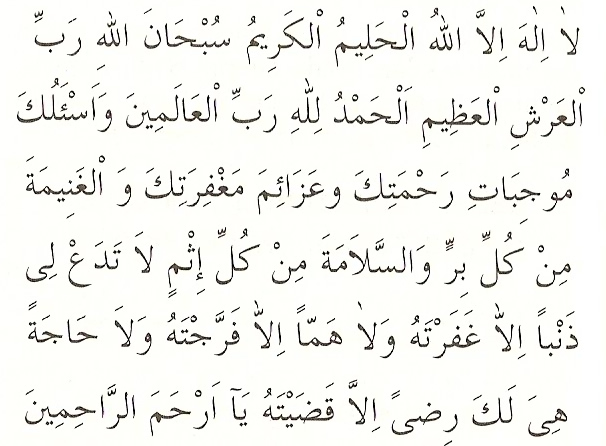 لاٰ اِلٰهَ اِلاَّ اللهُ الْحَلِيمُ الْكَرِيمُ سُبْحَانَ اللهِ رَبِّ
الْعَرْشِ الْعَظِيمِ اَلْحَمْدُ لِلهِ رَبِّ الْعَالَمِينَ وَاَسْئَلُكَ
مُوجِبَاتِ رَحْمَتِكَ وعَزَائِمَ مَغْفِرَتِكَ وَ الْغَنِيمَةَ
مِنْ كُلِّ بِرٍّ وَالسَّلاَمَةَ مِنْ كُلِّ إِثْمٍ لاَ تَدَعْ لِى
ذَنْباً اِلاَّ غَفَرْتَهُ وَلاٰ هَمّاً اِلاَّ فَرَّجْتَهُ وَلاَ حَاجَةً
هِىَ لَكَ رِضىً اِلاَّ قَضَيْتَهُ يَآ اَرْحَمَ الرَّاحِمِينَ